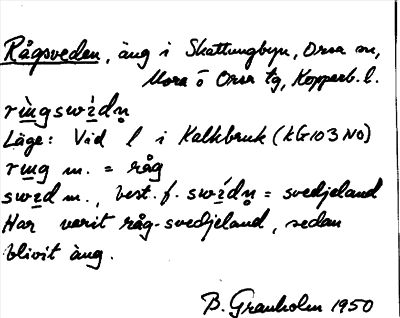 Rågsveden, äng i Skattungbyn, Orsa sn,
Mora o Orsa tg, Kopparb. l.
rìngswɪ́dn̥
Läge: Vid l i Kalkbruk (kG103NO)
rɪng m. = råg
swɪd m., best. f. swɪ́dn̥ = svedjeland
Har varit råg-svedjeland, sedan
blivit äng.
B. Granholm 1950